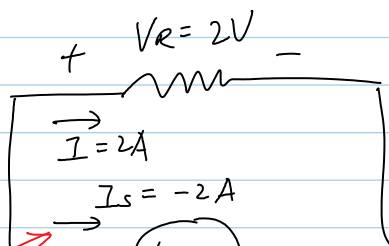 V_R = 2V
+ −
I = 2A
I_s = -2A